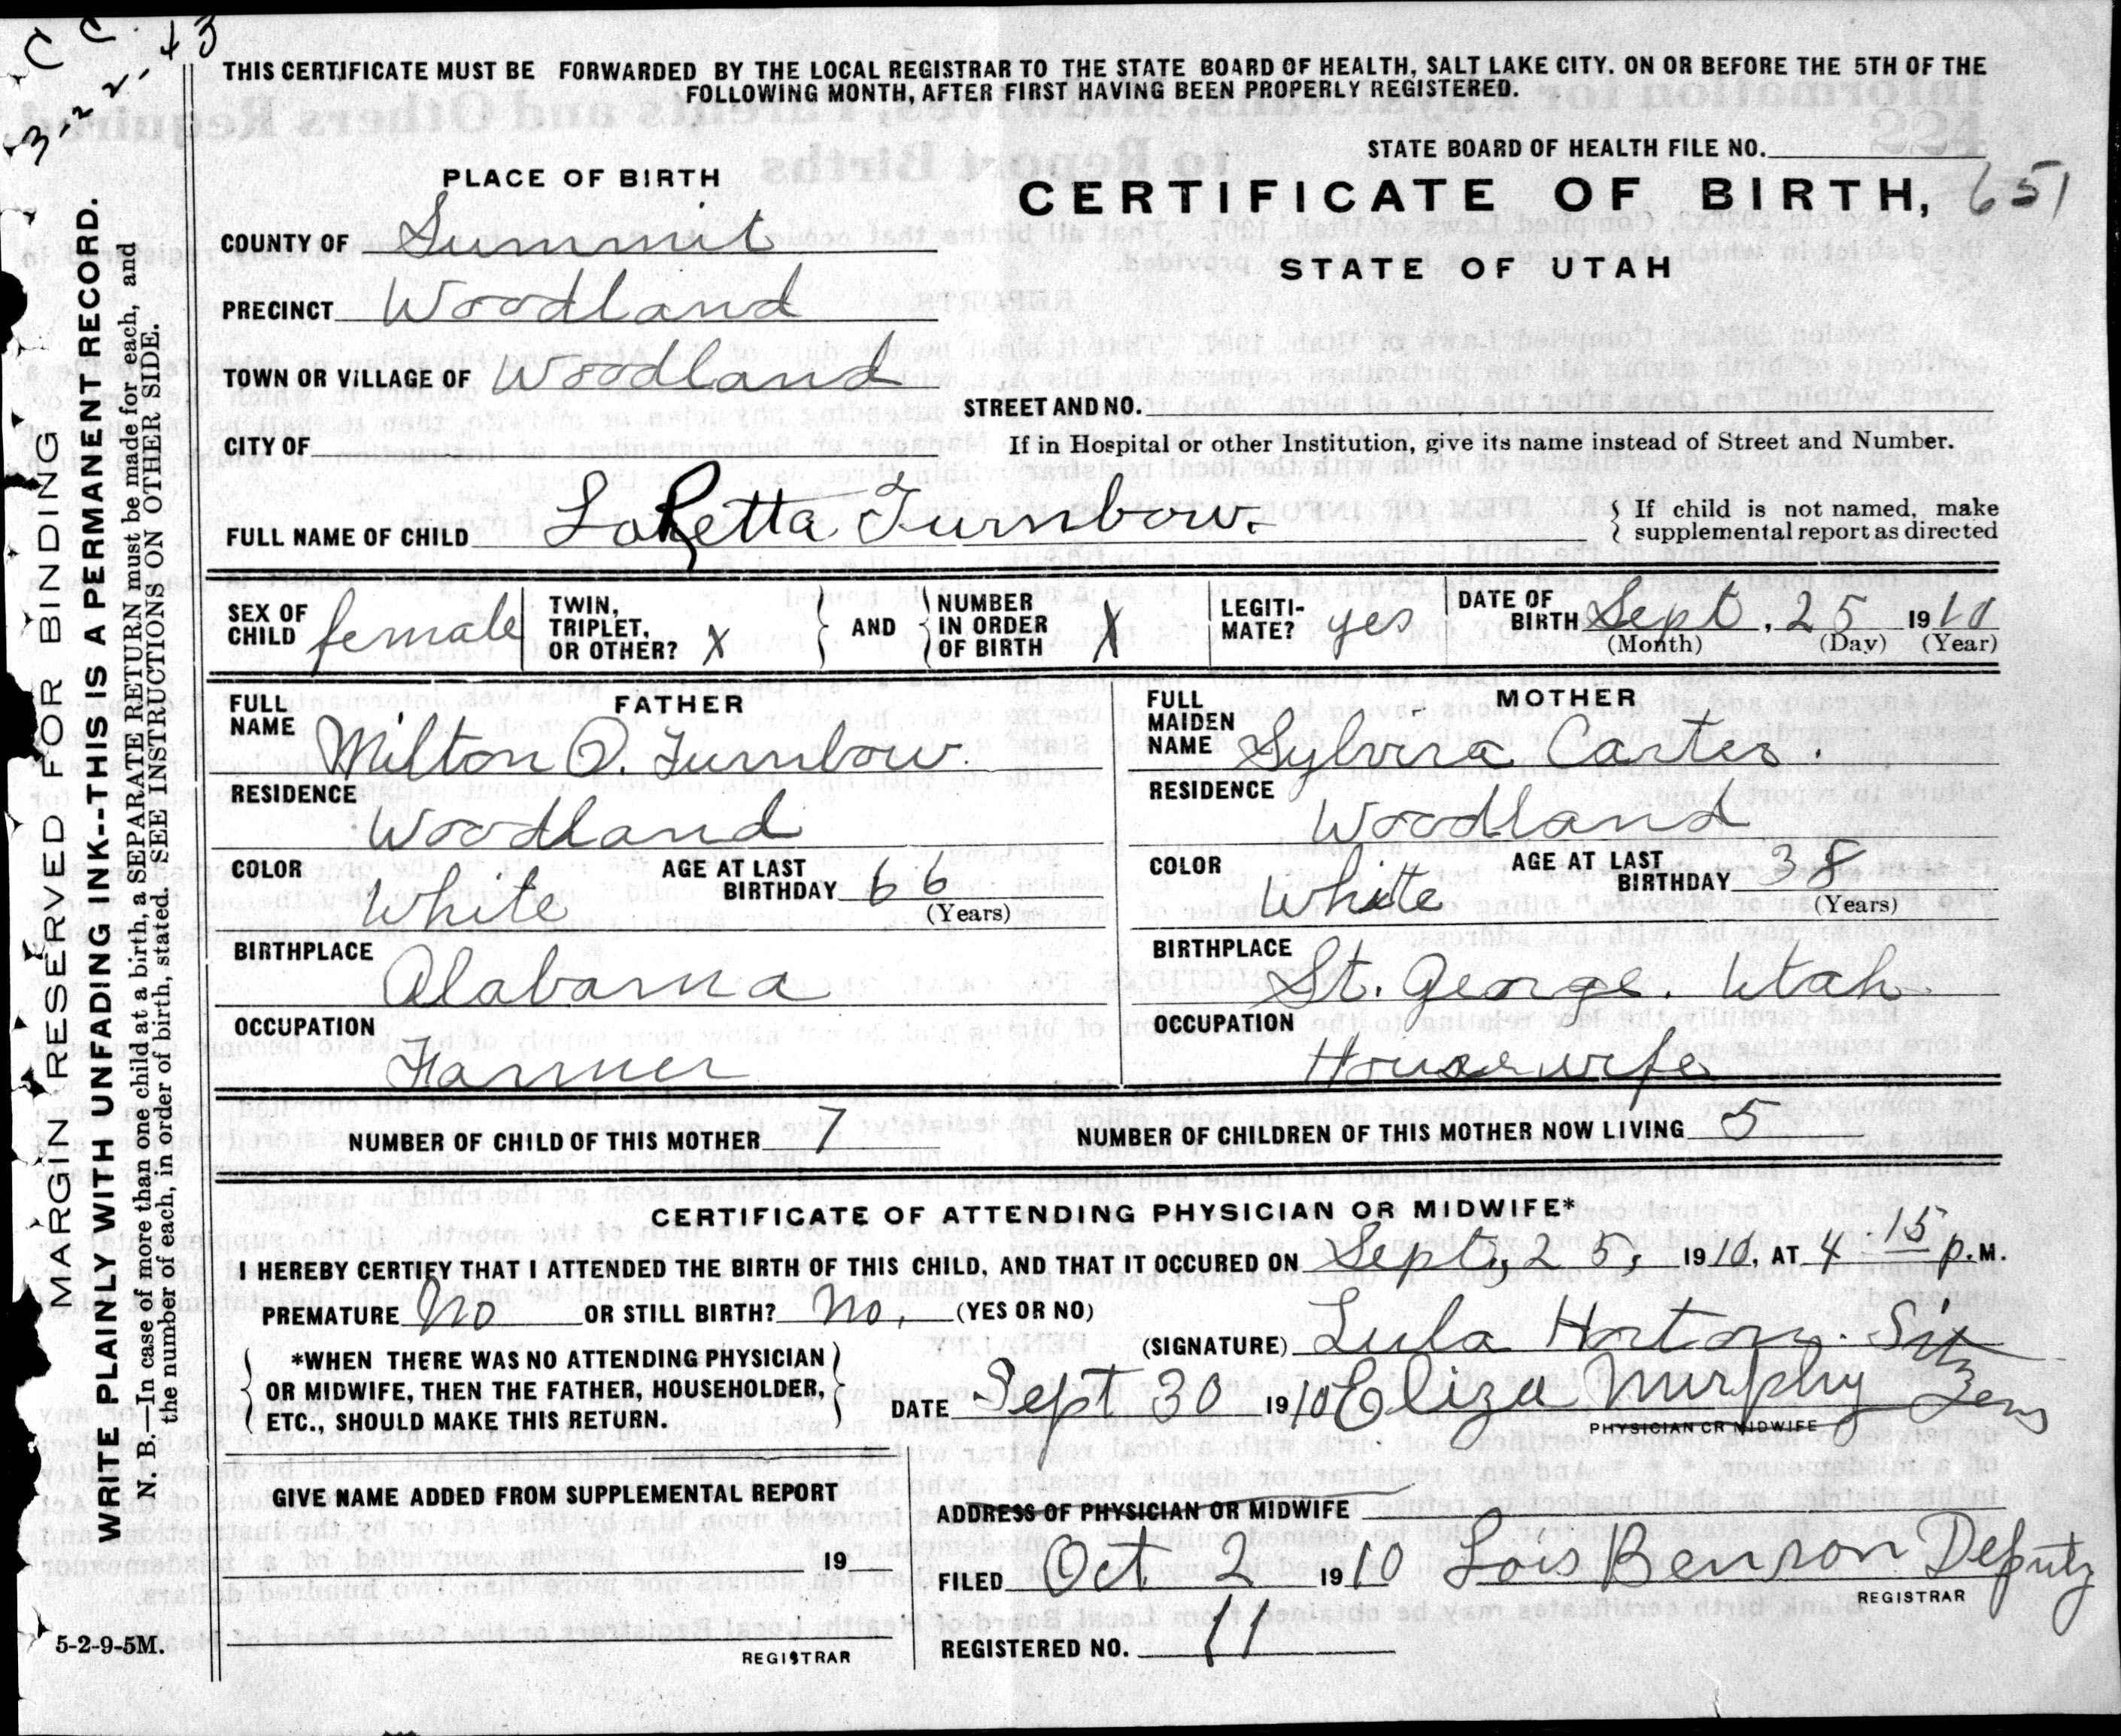 C C. + 3
3-22-
THIS CERTIFICATE MUST BE FORWARDED BY THE LOCAL REGISTRAR TO THE STATE BOARD OF HEALTH, SALT LAKE CITY. ON OR BEFORE THE 5TH OF THE
FOLLOWING MONTH, AFTER FIRST HAVING BEEN PROPERLY REGISTERED.
STATE BOARD OF HEALTH FILE NO.
PLACE OF BIRTH
CERTIFICATE OF BIRTH, 651
COUNTY OF Summit
STATE OF UTAH
PRECINCT Woodland
TOWN OR VILLAGE OF Woodland
STREET AND NO.
CITY OF
If in Hospital or other Institution, give its name instead of Street and Number.
FULL NAME OF CHILD LaRetta Turnbow.
If child is not named, make
supplemental report as directed
SEX OF CHILD female
TWIN, TRIPLET, OR OTHER? X
AND
NUMBER IN ORDER OF BIRTH X
LEGITI-MATE? yes
DATE OF BIRTH Sept. 25 1910
(Month) (Day) (Year)
FATHER
FULL NAME Milton O. Turnbow.
RESIDENCE
Woodland
COLOR White
AGE AT LAST BIRTHDAY 66
(Years)
BIRTHPLACE
Alabama
OCCUPATION
Farmer
MOTHER
FULL MAIDEN NAME Sylvira Carter.
RESIDENCE
Woodland
COLOR White
AGE AT LAST BIRTHDAY 38
(Years)
BIRTHPLACE
St. George. Utah
OCCUPATION
Housewife
NUMBER OF CHILD OF THIS MOTHER 7
NUMBER OF CHILDREN OF THIS MOTHER NOW LIVING 5
CERTIFICATE OF ATTENDING PHYSICIAN OR MIDWIFE*
I HEREBY CERTIFY THAT I ATTENDED THE BIRTH OF THIS CHILD, AND THAT IT OCCURED ON Sept, 25, 1910, AT 4 15 P.M.
PREMATURE No OR STILL BIRTH? No. (YES OR NO)
(SIGNATURE) Lula Horton.
*WHEN THERE WAS NO ATTENDING PHYSICIAN
OR MIDWIFE, THEN THE FATHER, HOUSEHOLDER,
ETC., SHOULD MAKE THIS RETURN.
DATE Sept 30 1910 Eliza Murphy
PHYSICIAN OR MIDWIFE
GIVE NAME ADDED FROM SUPPLEMENTAL REPORT
19
REGISTRAR
ADDRESS OF PHYSICIAN OR MIDWIFE
FILED Oct. 2 1910 Lois Benson Deputy
REGISTRAR
REGISTERED NO. 11
5-2-9-5M.
MARGIN RESERVED FOR BINDING
WRITE PLAINLY WITH UNFADING INK--THIS IS A PERMANENT RECORD.
N. B.--In case of more than one child at a birth, a SEPARATE RETURN must be made for each, and
the number of each, in order of birth, stated. SEE INSTRUCTIONS ON OTHER SIDE.